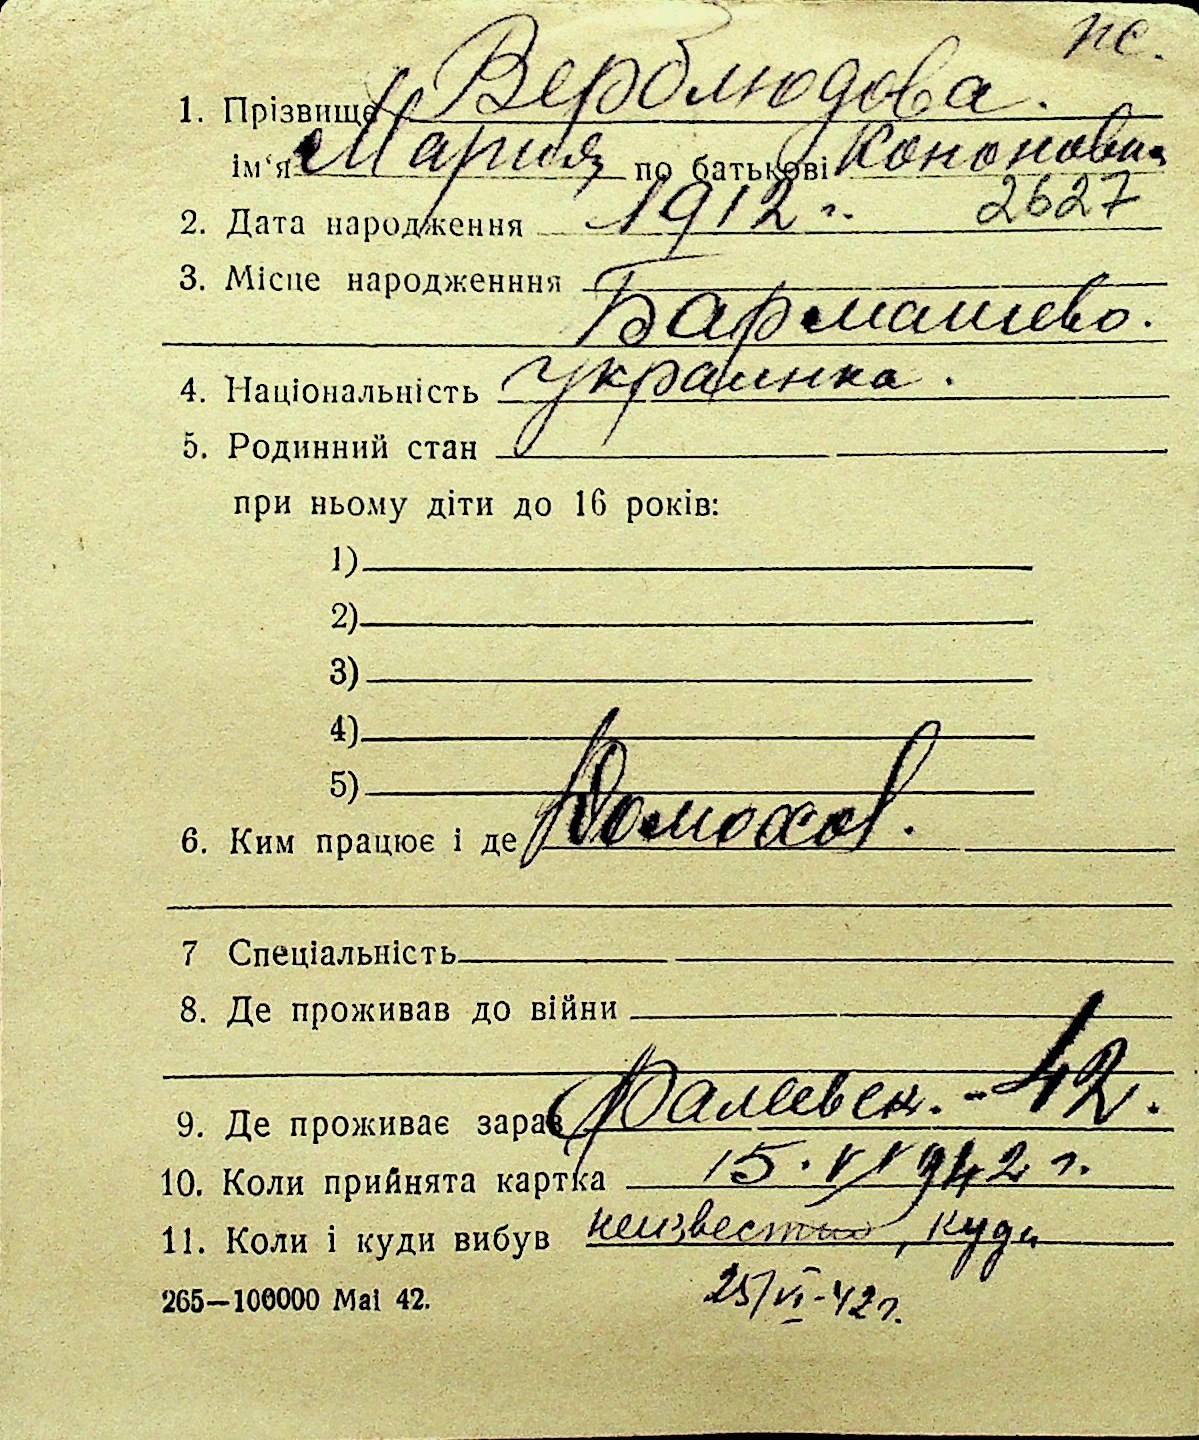 пс.
1. Прізвище Верблюдова.
ім'я Мария по батькові Кононовна
2. Дата народження 1912 г. 2627
3. Місце народженння
Бармашево.
4. Національність украинка.
5. Родинний стан
при ньому діти до 16 років:
1)
2)
3)
4)
5)
6. Ким працює і де Домохоз.
7 Спеціальність
8. Де проживав до війни
9. Де проживає зараз Фалеевск. - 42.
10. Коли прийнята картка 15. VI 942 г.
11. Коли і куди вибув неизвестно, куда
265—100000 Mai 42. 25/VI-42г.